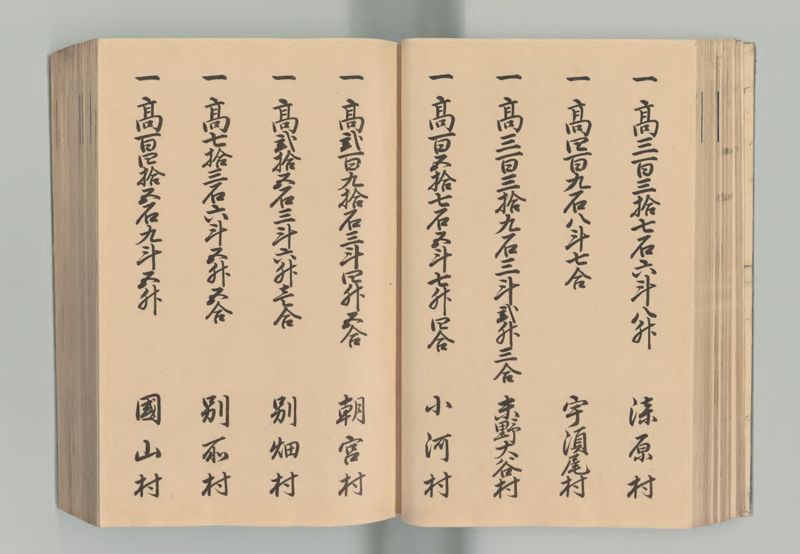 一 高三百三拾七石六斗八升 湊原村
一 高四百九石八斗七合 宇須尾村
一 高三百三拾九石三斗弐升三合 末野大谷村
一 高百五拾七石五斗七升四合 小河村
一 高弐百九拾石三斗四升五合 朝宮村
一 高弐拾五石三斗六升壱合 別畑村
一 高七拾三石六斗五升五合 別所村
一 高百四拾五石九斗五升 國山村